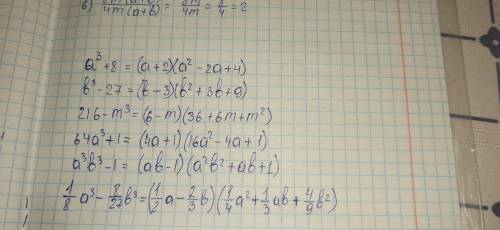 4m(a+b) = 8m/4m = 8/4 = 2
a³+8 = (a+2)(a²-2a+4)
b³-27 = (b-3)(b²+3b+9)
216-m³ = (6-m)(36+6m+m²)
64a³+1 = (4a+1)(16a²-4a+1)
a³b³-1 = (ab-1)(a²b²+ab+1)
1/8 a³ - 8/27 b³ = (1/2 a - 2/3 b)(1/4 a² + 1/3 ab + 4/9 b²)